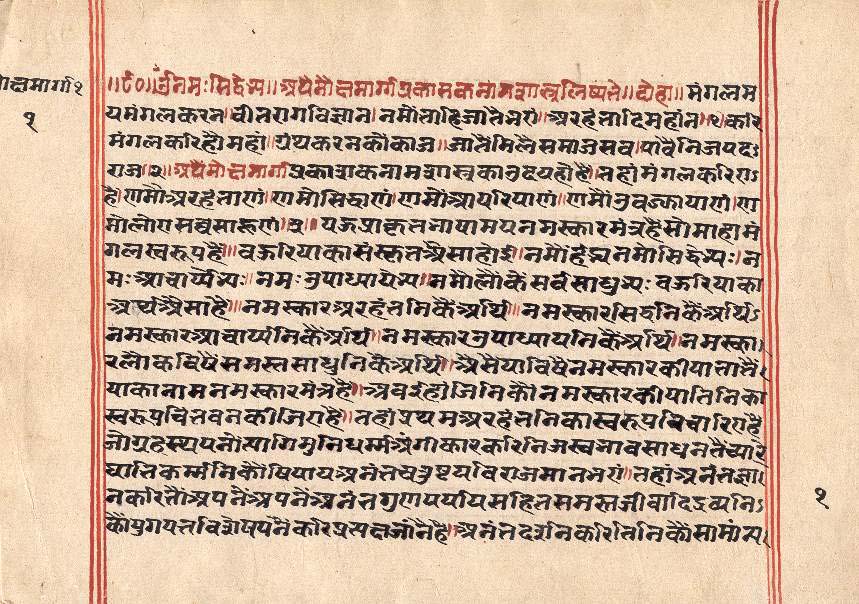 मोक्षमार्ग १
१
॥ र्द०॥ ॐ नमः सिद्धेभ्यः॥ अथ मोक्षमार्ग प्रकासक नाम शास्त्र लिष्यते॥ दोहा॥ मंगलम
यमंगलकरन। वीतरागविज्ञान। नमौं ताहि जातैं भए। अरहंतादि महांन। १। करि
मंगल करिहौं महां। ग्रंथ करनकौ काज। जातैं मिलै समाज सब। पावै निजपद
राज। २। अथ मोक्षमार्ग प्रकाशक नाम शास्त्र का उदय हो है। तहां मंगल करिए
है। णमो अरहंताणं। णमो सिद्धाणं। णमो आयरियाणं। णमो उवज्झायाणं। ण
मो लोए सव्वसाहूणं। १। यह प्राकृतभाषामय नमस्कारमंत्र है सो महामं
गल स्वरूप है। बहुरि याका संस्कृत औसा होइ। नमोर्हद्भ्यः नमो सिद्धेभ्यः। न
मः आचार्येभ्यः। नमः उपाध्यायेभ्यः। नमो लोके सर्वसाधुभ्यः बहुरि याका
अर्थ औसा है। नमस्कार अरहंतनिकै अर्थि। नमस्कार सिद्धनिकै अर्थि
नमस्कार आचार्यनिकै अर्थि। नमस्कार उपाध्यायनिकै अर्थि। नमस्का
र लोकविषै समस्तसाधुनिकै अर्थि। औसै या विषै नमस्कार कीया तातैं
याका नाम नमस्कारमंत्र है। अब इहां जिनिकौं नमस्कार कीया तिनिका
स्वरूप चिंतवन कीजिए है। तहां प्रथम अरहंतनिका स्वरूप विचारिए है
जो ग्रहस्थपनो त्यागि मुनिधर्म अंगीकार करि निजस्वभावसाधनतैं च्यारि
घातिकर्मनिकौं षिपाय अनंतचतुष्टय विराजमान भए। तहां अनंतज्ञा
न करि तौ अपने अपने अनंतगुणपर्याय सहित समस्त जीवादि द्रव्यनि
कौं युगपत् विशेषपनै करि प्रत्यक्ष जांनै है। अनंतदर्शन करि तिनिकौं सामान्य
१